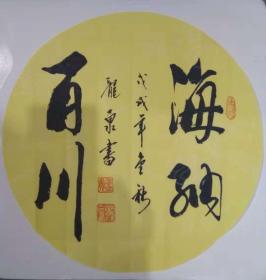 海纳
百川
戊戌年金秋
龍泉書